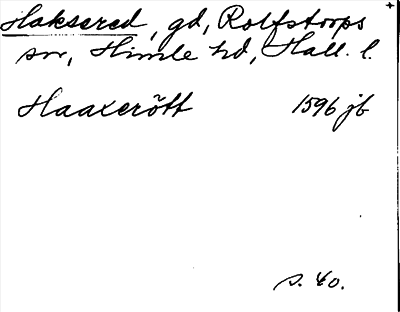 Haksered, gd, Rolfstorps
sn, Himle hd, Hall. l.
Haaxerött 1596 jb
s. 40.